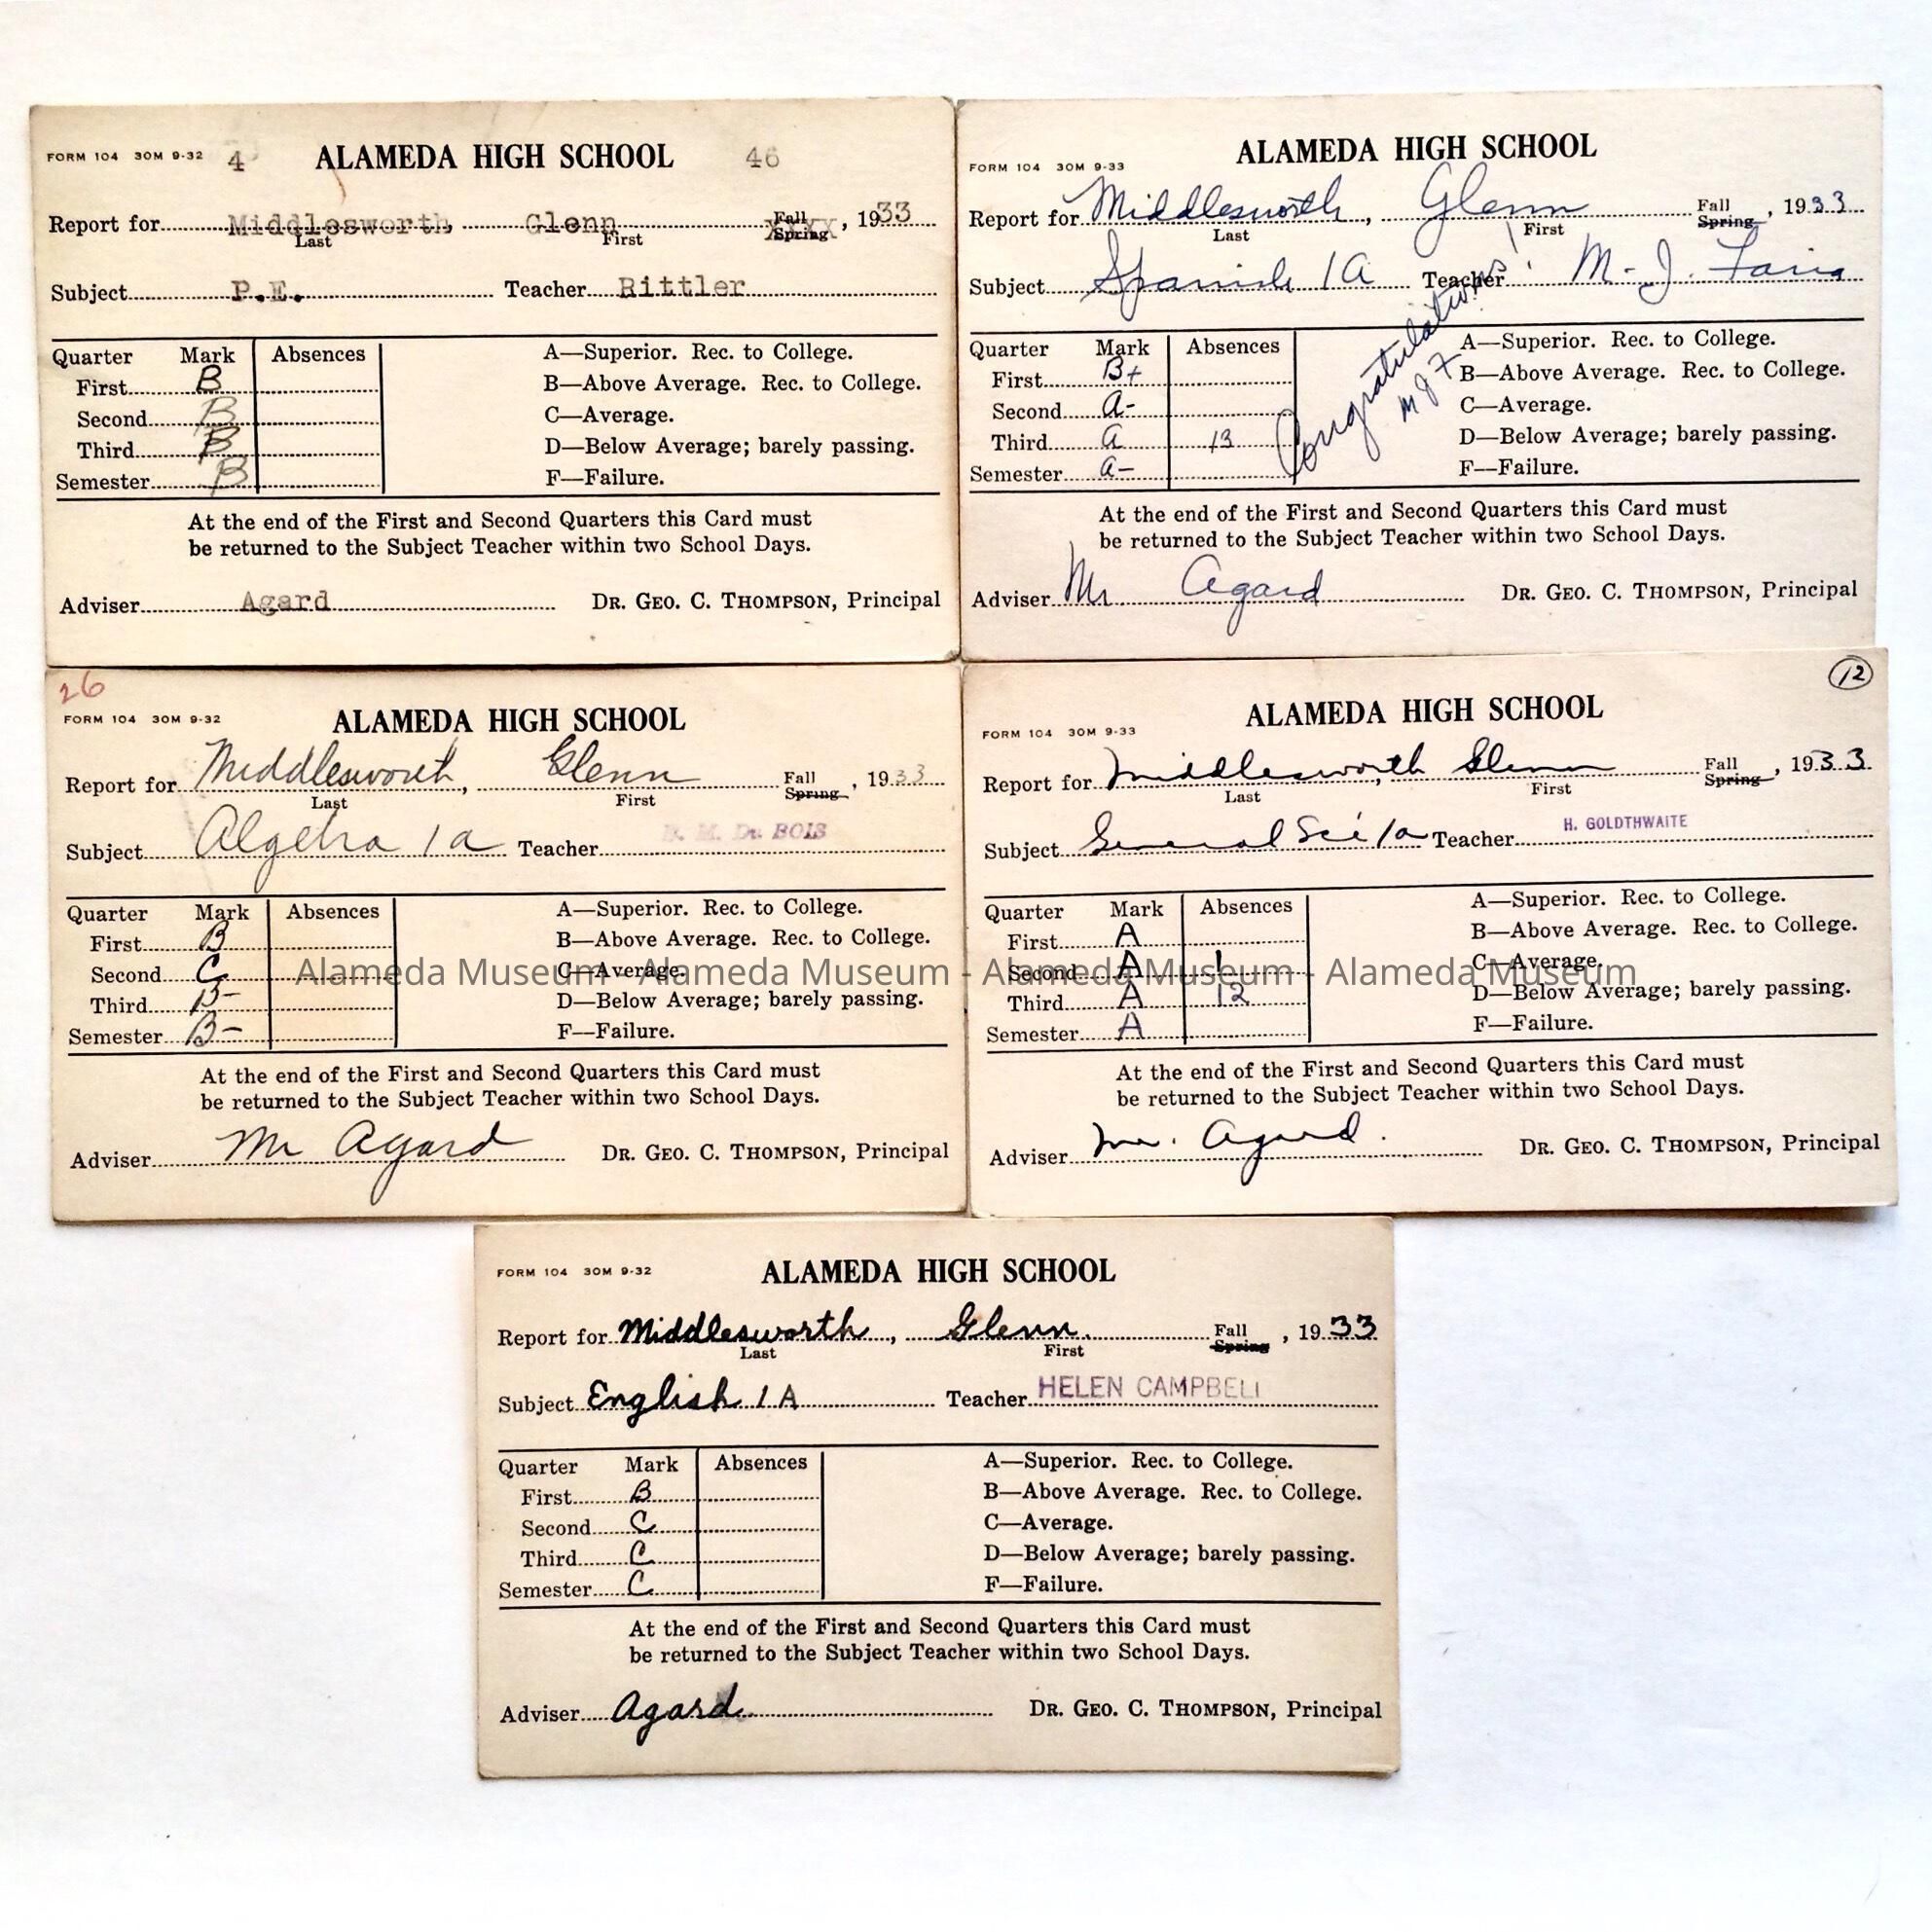 FORM 104 30M 9-32 4 ALAMEDA HIGH SCHOOL 46
Report for Middlesworth, Glenn Fall Spring, 1933
Last First
Subject P.E. Teacher Rittler
Quarter Mark Absences
First B
Second B
Third B
Semester B
A—Superior. Rec. to College.
B—Above Average. Rec. to College.
C—Average.
D—Below Average; barely passing.
F—Failure.
At the end of the First and Second Quarters this Card must
be returned to the Subject Teacher within two School Days.
Adviser Agard DR. GEO. C. THOMPSON, Principal
FORM 104 30M 9-33 ALAMEDA HIGH SCHOOL
Report for Middlesworth, Glenn Fall Spring, 1933
Last First
Subject Spanish 1A Teacher M. J. Faria
Quarter Mark Absences
First B+
Second A-
Third A 13
Semester A-
Congratulations!
M J F
A—Superior. Rec. to College.
B—Above Average. Rec. to College.
C—Average.
D—Below Average; barely passing.
F—Failure.
At the end of the First and Second Quarters this Card must
be returned to the Subject Teacher within two School Days.
Adviser Mr. Agard DR. GEO. C. THOMPSON, Principal
26
FORM 104 30M 9-32 ALAMEDA HIGH SCHOOL
Report for Middlesworth, Glenn Fall Spring, 1933
Last First
Subject Algebra 1a Teacher M. Du BOIS
Quarter Mark Absences
First B
Second C
Third B-
Semester B-
A—Superior. Rec. to College.
B—Above Average. Rec. to College.
C—Average.
D—Below Average; barely passing.
F—Failure.
At the end of the First and Second Quarters this Card must
be returned to the Subject Teacher within two School Days.
Adviser Mr Agard DR. GEO. C. THOMPSON, Principal
12
FORM 104 30M 9-33 ALAMEDA HIGH SCHOOL
Report for Middlesworth, Glenn Fall Spring, 1933
Last First
Subject General Sci 1a Teacher H. GOLDTHWAITE
Quarter Mark Absences
First A
Second A 1
Third A 12
Semester A
A—Superior. Rec. to College.
B—Above Average. Rec. to College.
C—Average.
D—Below Average; barely passing.
F—Failure.
At the end of the First and Second Quarters this Card must
be returned to the Subject Teacher within two School Days.
Adviser Mr. Agard. DR. GEO. C. THOMPSON, Principal
Alameda Museum - Alameda Museum - Alameda Museum - Alameda Museum
FORM 104 30M 9-32 ALAMEDA HIGH SCHOOL
Report for Middlesworth, Glenn. Fall Spring, 1933
Last First
Subject English 1A Teacher HELEN CAMPBELL
Quarter Mark Absences
First B
Second C
Third C
Semester C
A—Superior. Rec. to College.
B—Above Average. Rec. to College.
C—Average.
D—Below Average; barely passing.
F—Failure.
At the end of the First and Second Quarters this Card must
be returned to the Subject Teacher within two School Days.
Adviser Agard DR. GEO. C. THOMPSON, Principal